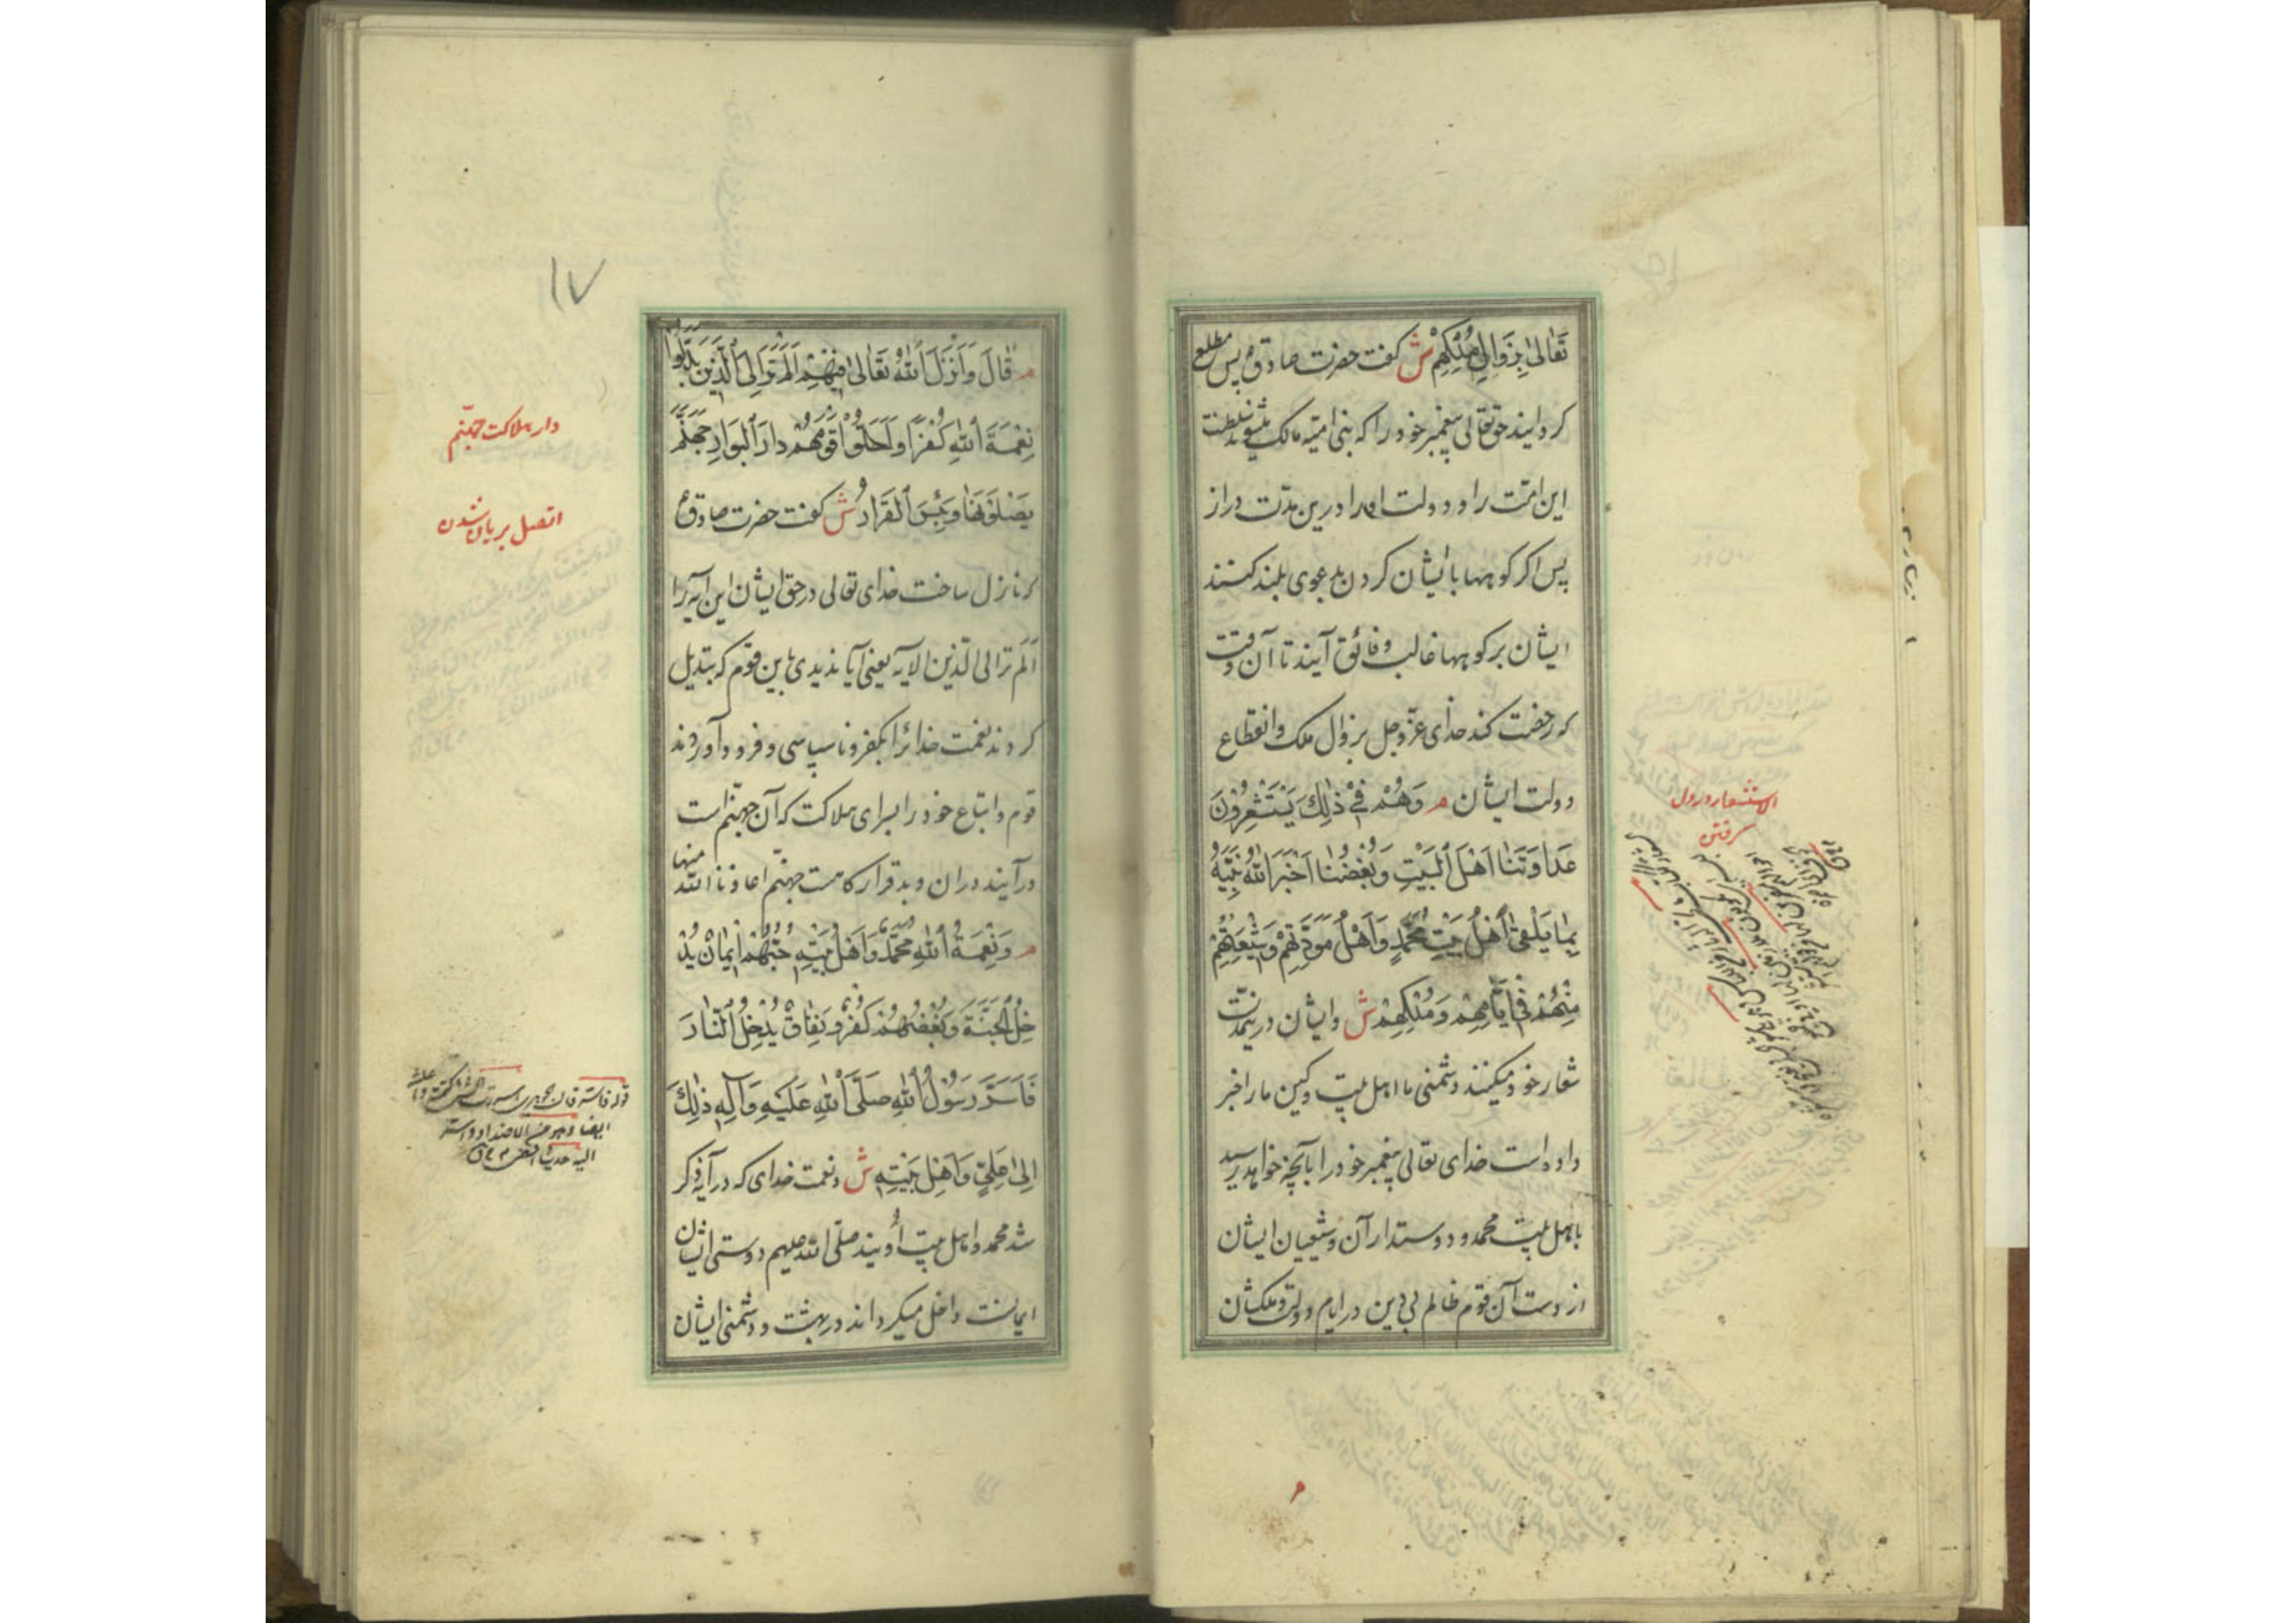 تَعَالىٰ بِزَوَالِ مُلْكِهِمْ ش گفت حضرت صادق ع پس مطلع
گردانید حق تعالی پیغمبر خود را که بنی امیّه مالک میشوند سلطنت
این امّت را و دولت او را درین مدّت دراز
پس اگر کوهها با ایشان گردن بدعوی بلند کنند
ایشان بر کوهها غالب و فائق آیند تا آن وقت
که رخصت کند خدای عزّ و جل بزوال ملک و انقطاع
دولت ایشان م وَهُمْ فِيْ ذٰلِكَ يَسْتَشْعِرُوْنَ
عَدَاوَتَنَا اَهْلَ الْبَيْتِ وَبُغْضَنَا اَخْبَرَ اللهُ نَبِيَّهُ
بِمَا يَلْقىٰ اَهْلُ بَيْتِ مُحَمَّدٍ وَاَهْلُ مَوَدَّتِهِمْ وَشِيْعَتُهُمْ
مِنْهُمْ فِيْ اَيَّامِهِمْ وَمُلْكِهِمْ ش و ایشان درینمدّت
شعار خود میکنند دشمنی ما اهل بیت و کین ما را خبر
داده است خدای تعالی پیغمبر خود را بآنچه خواهد رسید
باهل بیت محمد و دوستداران و شیعیان ایشان
از دست آن قوم ظالم بی دین در ایام دولت و ملکشان
الاستشعار در دل
گرفتن
۱۷
م قَالَ وَاَنْزَلَ اللهُ تَعَالىٰ فِيْهِمْ اَلَمْ تَرَ اِلَى الَّذِيْنَ بَدَّلُوا
نِعْمَةَ اللهِ كُفْرًا وَاَحَلُّوْا قَوْمَهُمْ دَارَ الْبَوَارِ جَهَنَّمَ
يَصْلَوْنَهَا وَبِئْسَ الْقَرَارُ ش گفت حضرت صادق ع
که نازل ساخت خدای تعالی در حق ایشان این آیه را
اَلَم تر الی الّذین الآیه یعنی آیا ندیدی باین قوم که بتدیل
کردند نعمت خدایرا بکفر و ناسپاسی و فرود آوردند
قوم و اتباع خود را بسرای هلاکت که آن جهنّم است
درآیند دران و بد قرارگاهست جهنّم اعاذنا الله منها
م وَنِعْمَةُ اللهِ مُحَمَّدٌ وَاَهْلُ بَيْتِهِ حُبُّهُمْ اِيْمَانٌ يُدْ
خِلُ الْجَنَّةَ وَبُغْضُهُمْ كُفْرٌ وَنِفَاقٌ يُدْخِلُ النَّارَ
فَاَسَرَّ رَسُوْلُ اللهِ صَلَّى اللهُ عَلَيْهِ وَآلِهِ ذٰلِكَ
اِلىٰ عَلِيٍّ وَاَهْلِ بَيْتِهِ ش و نعمت خدای که در آیه ذکر
شد محمد و اهل بیت اویند صلّی الله علیهم دوستی ایشان
ایمانست داخل میگرداند در بهشت و دشمنی ایشان
دار هلاکت جهنّم
اتصل بریان شدن
ایضا و هو من الاضداد و اسرّ
الیه حدیثا